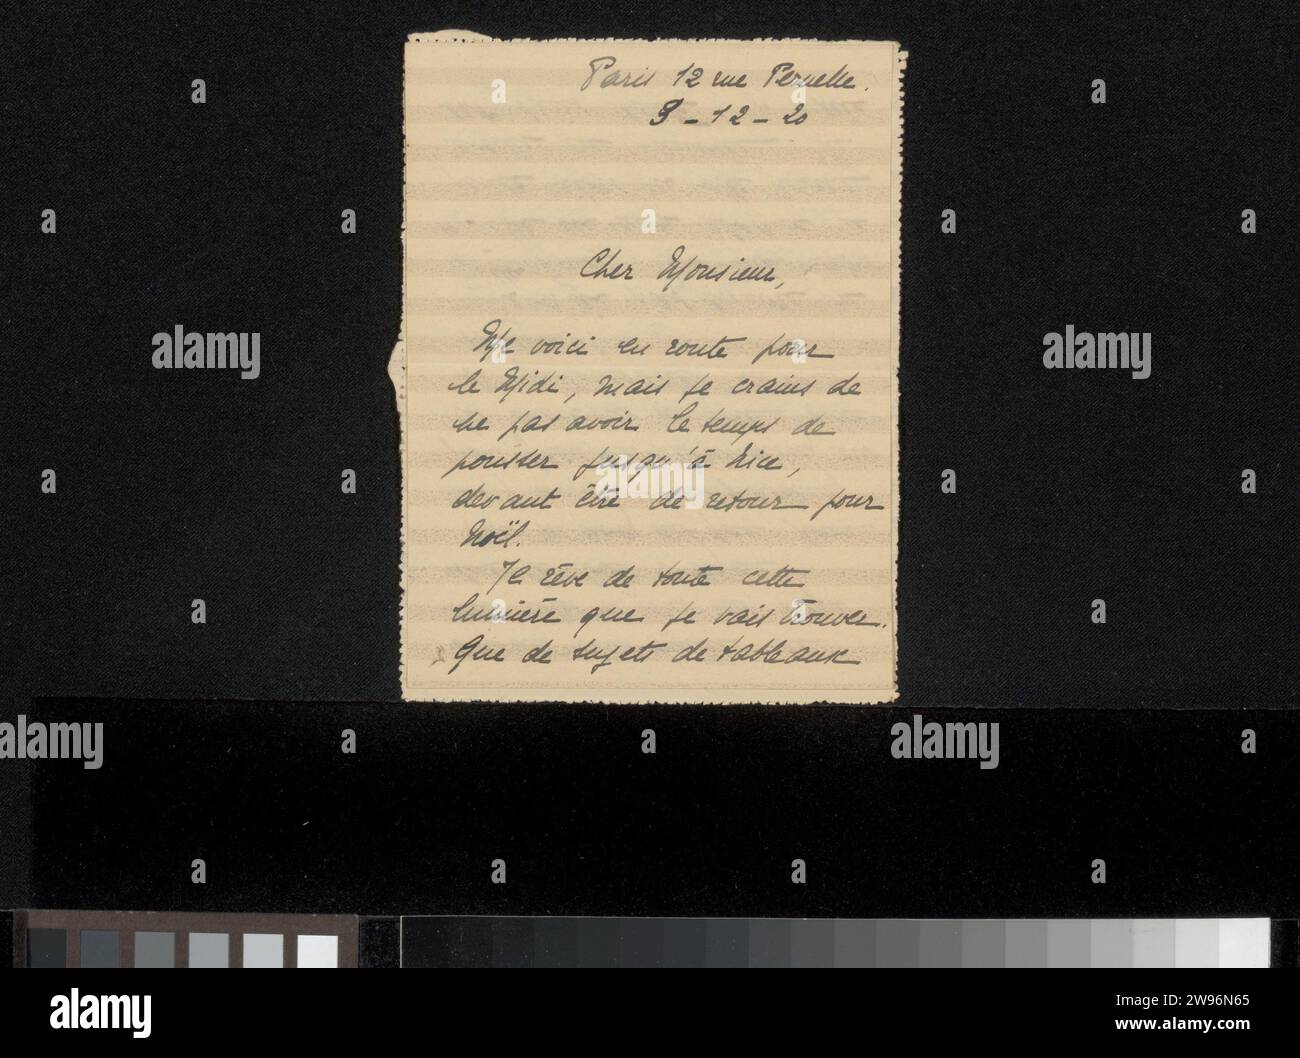 Paris 12 rue Pernelle.
9-12-20
Cher Monsieur,
Me voici en route pour
le Midi, mais je crains de
ne pas avoir le temps de
pousser jusqu'à Nice,
devant être de retour pour
Noël.
Je rêve de toute cette
lumière que je vais trouver.
Que de sujets de tableaux
alamy
alamy
alamy
alamy
alamy
Image ID: 2W96N65
www.alamy.com